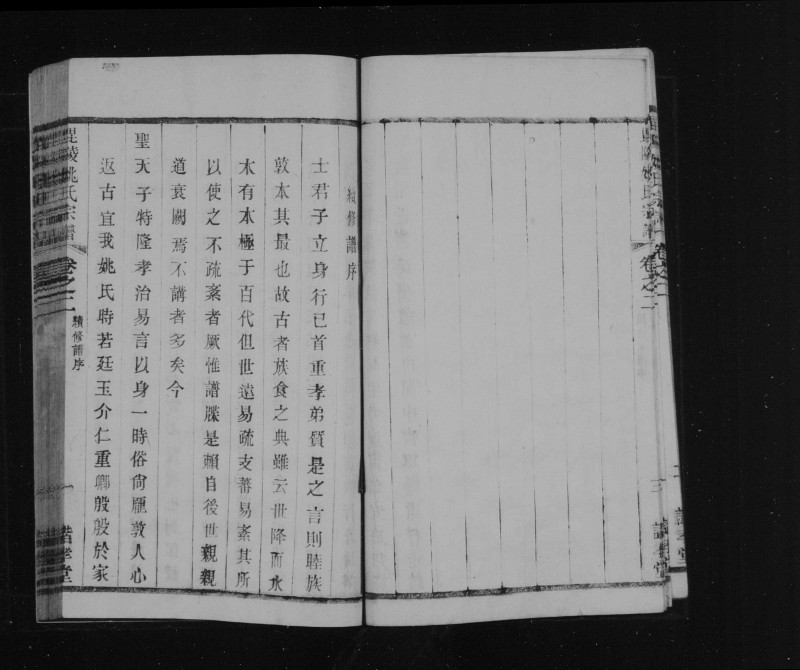 續修譜序
士君子立身行已首重孝弟質是之言則睦族
敦本其最也故古者族食之典雖云世降而水
木有本極于百代但世遠易疏支蕃易紊其所
以使之不疏紊者厥惟譜牒是賴自後世親親
道衰闕焉不講者多矣今
聖天子特隆孝治易言以身一時俗尙龐敦人心
返古宜我姚氏時若廷玉介仁重卿殷殷於家
毘陵姚氏宗譜
卷之二
續修譜序
一
卷之二